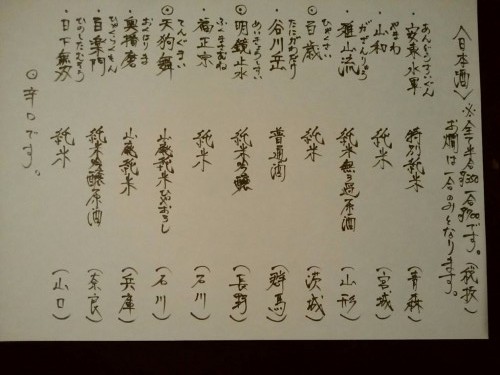 〈日本酒〉※全て半合¥350 一合¥700です。(税抜)
お燗は一合のみとなります。
あんどうすいぐん
・安東水軍 特別純米 (青森)
やまわ
・山和 純米 (宮城)
がさんりゅう
・雅山流 純米無ろ過原酒 (山形)
ひゃくさい
◎百歳 純米 (茨城)
たにがわだけ
・谷川岳 普通酒 (群馬)
めいきょうしすい
・明鏡止水 純米吟醸 (長野)
ふくまさむね
・福正宗 純米 (石川)
てんぐまい
◎天狗舞 山廃純米ひやおろし (石川)
おくはりま
・奥播磨 山廃純米 (兵庫)
ひゃくらくもん
・百楽門 純米吟醸原酒 (奈良)
ひのしたむそう
・日下無双 純米 (山口)
◎辛口です。